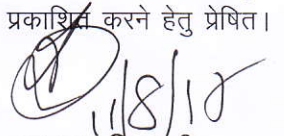 प्रकाशित करने हेतु प्रेषित।
11/8/18